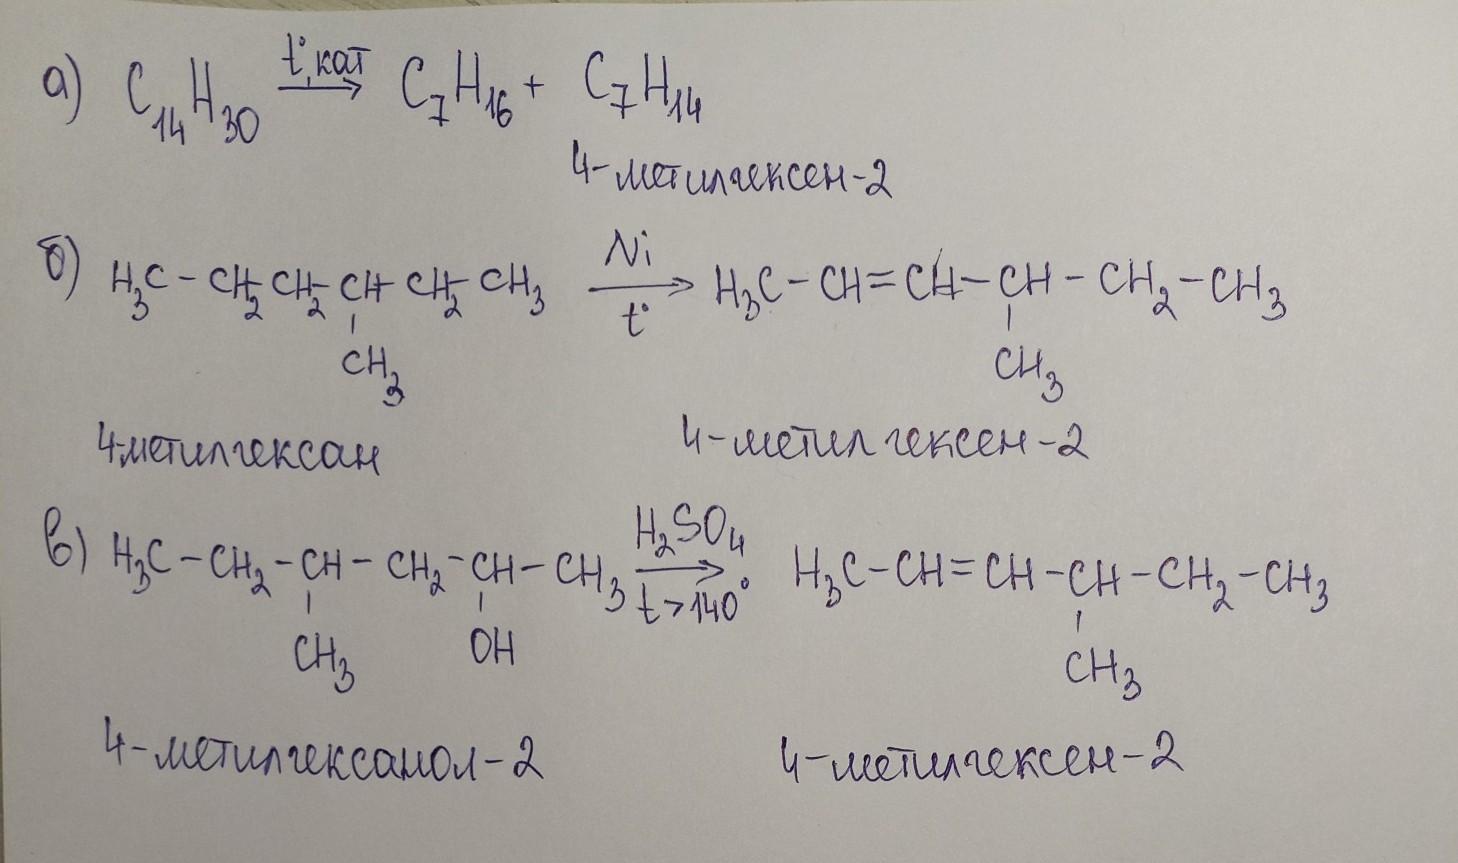 а) C₁₄H₃₀ t°, кат → C₇H₁₆ + C₇H₁₄
4-метилгексен-2
б) H₃C - CH₂ - CH₂ - CH - CH₂ - CH₃ Ni → t° H₃C - CH = CH - CH - CH₂ - CH₃
CH₃ CH₃
4-метилгексан 4-метилгексен-2
в) H₃C - CH₂ - CH - CH₂ - CH - CH₃ H₂SO₄ → t>140° H₃C - CH = CH - CH - CH₂ - CH₃
CH₃ OH CH₃
4-метилгексанол-2 4-метилгексен-2